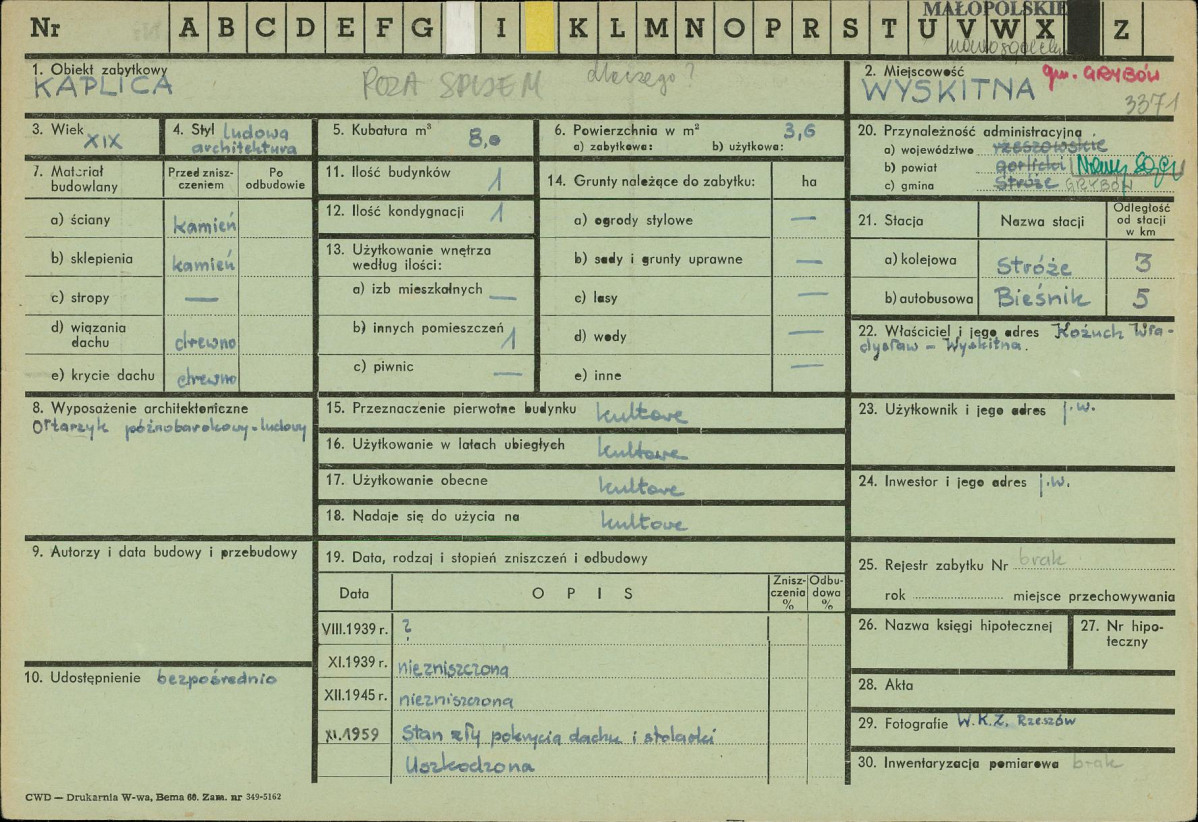 Nr A B C D E F G I K L M N O P R S T U V W X Z
MAŁOPOLSKIE
1. Obiekt zabytkowy
KAPLICA
POZA SPISEM dlaczego?
2. Miejscowość gm. GRYBÓW
WYSKITNA
3371
3. Wiek XIX
4. Styl ludowa
architektura
5. Kubatura m³ 8,0
6. Powierzchnia w m² 3,6
a) zabytkowa: b) użytkowa:
7. Materiał budowlany
Przed zniszczeniem
Po odbudowie
a) ściany kamień
b) sklepienia kamień
c) stropy —
d) wiązania dachu drewno
e) krycie dachu drewno
8. Wyposażenie architektoniczne
Ołtarzyk późnobarokowy-ludowy
9. Autorzy i data budowy i przebudowy
10. Udostępnienie bezpośrednio
11. Ilość budynków 1
12. Ilość kondygnacji 1
13. Użytkowanie wnętrza
według ilości:
a) izb mieszkalnych —
b) innych pomieszczeń 1
c) piwnic —
14. Grunty należące do zabytku: ha
a) ogrody stylowe —
b) sady i grunty uprawne —
c) lasy —
d) wody —
e) inne —
15. Przeznaczenie pierwotne budynku kultowe
16. Użytkowanie w latach ubiegłych kultowe
17. Użytkowanie obecne kultowe
18. Nadaje się do użycia na kultowe
19. Data, rodzaj i stopień zniszczeń i odbudowy
Data O P I S Zniszczenia % Odbudowa %
VIII.1939 r. ?
XI.1939 r. niezniszczona
XII.1945 r. niezniszczona
XI.1959 Stan zły pokrycia dachu i stolarki
Uszkodzona
20. Przynależność administracyjna
a) województwo rzeszowskie
b) powiat gorlicki Nowy Sącz
c) gmina Stróże GRYBÓW
21. Stacja Nazwa stacji Odległość od stacji w km
a) kolejowa Stróże 3
b) autobusowa Bieśnik 5
22. Właściciel i jego adres Kożuch Wła-
dysław – Wyskitna.
23. Użytkownik i jego adres j.w.
24. Inwestor i jego adres j.w.
25. Rejestr zabytku Nr brak
rok miejsce przechowywania
26. Nazwa księgi hipotecznej
27. Nr hipo-
teczny
28. Akta
29. Fotografie W.K.Z. Rzeszów
30. Inwentaryzacja pomiarowa brak
CWD — Drukarnia W-wa, Bema 60. Zam. nr 349-5162